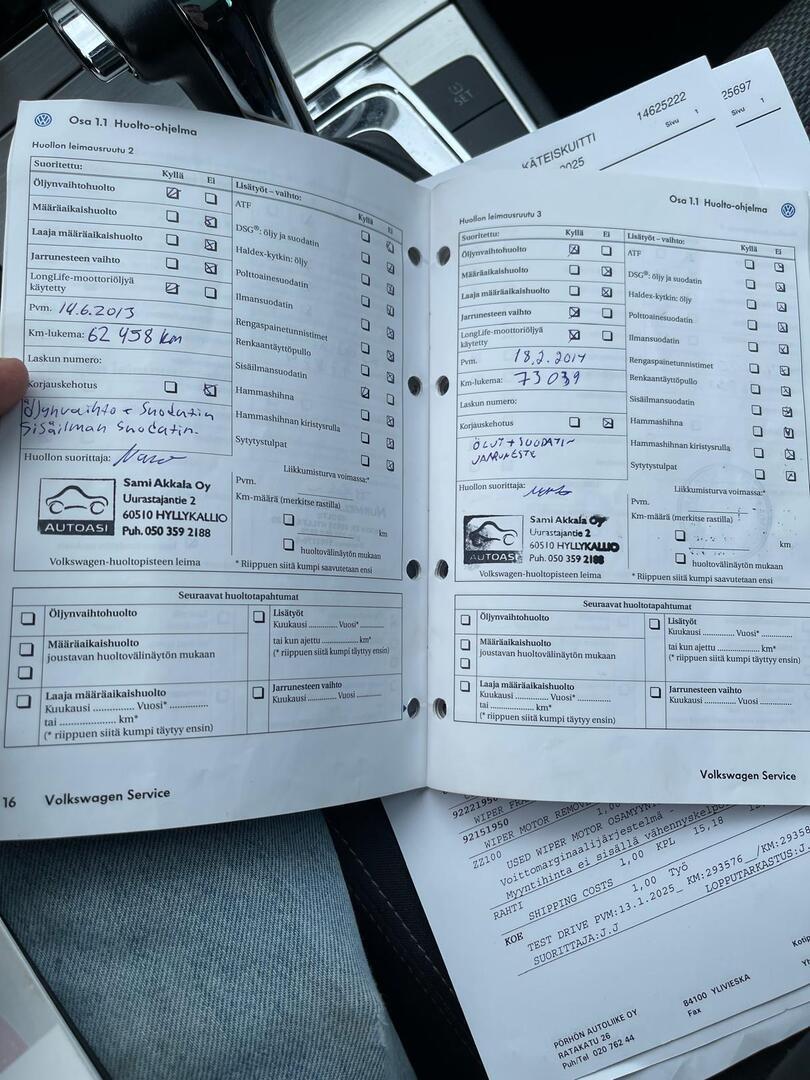 SET
14625222
Sivu 1
25697
Sivu 1
KÄTEISKUITTI
2025
Osa 1.1 Huolto-ohjelma
Huollon leimausruutu 2
Suoritettu: Kyllä Ei
Öljynvaihtohuolto
Määräaikaishuolto
Laaja määräaikaishuolto
Jarrunesteen vaihto
LongLife-moottoriöljyä
käytetty
Pvm. 14.6.2013
Km-lukema: 62 458 km
Laskun numero:
Korjauskehotus
Öljynvaihto + Suodatin
Sisäilman Suodatin.
Huollon suorittaja:
Sami Akkala Oy
Uurastajantie 2
60510 HYLLYKALLIO
Puh. 050 359 2188
AUTOASI
Volkswagen-huoltopisteen leima
Lisätyöt – vaihto:
Kyllä Ei
ATF
DSG®: öljy ja suodatin
Haldex-kytkin: öljy
Polttoainesuodatin
Ilmansuodatin
Rengaspainetunnistimet
Renkaantäyttöpullo
Sisäilmansuodatin
Hammashihna
Hammashihnan kiristysrulla
Sytytystulpat
Liikkumisturva voimassa:*
Pvm.
Km-määrä (merkitse rastilla)
km
huoltovälinäytön mukaan
* Riippuen siitä kumpi saavutetaan ensi
Seuraavat huoltotapahtumat
Öljynvaihtohuolto
Määräaikaishuolto
joustavan huoltovälinäytön mukaan
Laaja määräaikaishuolto
Kuukausi .............. Vuosi* ................
tai .................... km*
(* riippuen siitä kumpi täytyy ensin)
Lisätyöt
Kuukausi ............. Vuosi* ..........
tai kun ajettu .................. km*
(* riippuen siitä kumpi täytyy ensin)
Jarrunesteen vaihto
Kuukausi .............. Vuosi ..........
16 Volkswagen Service
Osa 1.1 Huolto-ohjelma
Huollon leimausruutu 3
Suoritettu: Kyllä Ei
Öljynvaihtohuolto
Määräaikaishuolto
Laaja määräaikaishuolto
Jarrunesteen vaihto
LongLife-moottoriöljyä
käytetty
Pvm. 18.2.2014
Km-lukema: 73039
Laskun numero:
Korjauskehotus
ÖLJYT + SUODATIN
JARRUNESTE
Huollon suorittaja:
Sami Akkala Oy
Uurastajantie 2
60510 HYLLYKALLIO
Puh. 050 359 2188
AUTOASI
Volkswagen-huoltopisteen leima
Lisätyöt – vaihto:
Kyllä Ei
ATF
DSG®: öljy ja suodatin
Haldex-kytkin: öljy
Polttoainesuodatin
Ilmansuodatin
Rengaspainetunnistimet
Renkaantäyttöpullo
Sisäilmansuodatin
Hammashihna
Hammashihnan kiristysrulla
Sytytystulpat
Liikkumisturva voimassa:*
Pvm.
Km-määrä (merkitse rastilla)
km
huoltovälinäytön mukaan
* Riippuen siitä kumpi saavutetaan ensi
Seuraavat huoltotapahtumat
Öljynvaihtohuolto
Määräaikaishuolto
joustavan huoltovälinäytön mukaan
Laaja määräaikaishuolto
Kuukausi .............. Vuosi* ................
tai .................... km*
(* riippuen siitä kumpi täytyy ensin)
Lisätyöt
Kuukausi ............. Vuosi* ..........
tai kun ajettu .................. km*
(* riippuen siitä kumpi täytyy ensin)
Jarrunesteen vaihto
Kuukausi .............. Vuosi ..........
Volkswagen Service
92151950
WIPER MOTOR REMOVE 1,00
ZZ100 USED WIPER MOTOR
Voittomarginaalijärjestelmä -
Myyntihinta ei sisällä
1,00 KPL 15,18
RAHTI SHIPPING COSTS 1,00 Työ
KOE TEST DRIVE PVM:13.1.2025_ KM:293576 __/KM:29358
SUORITTAJA:J.J LOPPUTARKASTUS:J.
PÖRHÖN AUTOLIIKE OY
RATAKATU 26
Puh/Tel 020 762 44
84100 YLIVIESKA
Fax